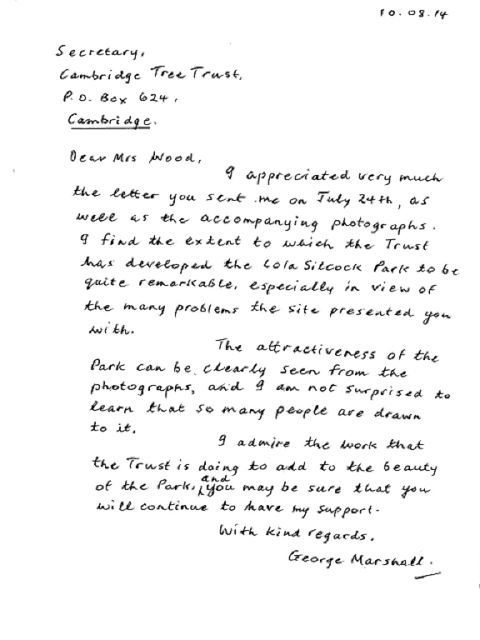 10.08.14
Secretary,
Cambridge Tree Trust,
P.O. Box 624,
Cambridge.
Dear Mrs Wood,
I appreciated very much
the letter you sent me on July 24th, as
well as the accompanying photographs.
I find the extent to which the Trust
has developed the Lola Silcock Park to be
quite remarkable, especially in view of
the many problems the site presented you
with.
The attractiveness of the
Park can be clearly seen from the
photographs, and I am not surprised to
learn that so many people are drawn
to it.
I admire the work that
the Trust is doing to add to the beauty
of the Park, and you may be sure that you
will continue to have my support.
With kind regards.
George Marshall.